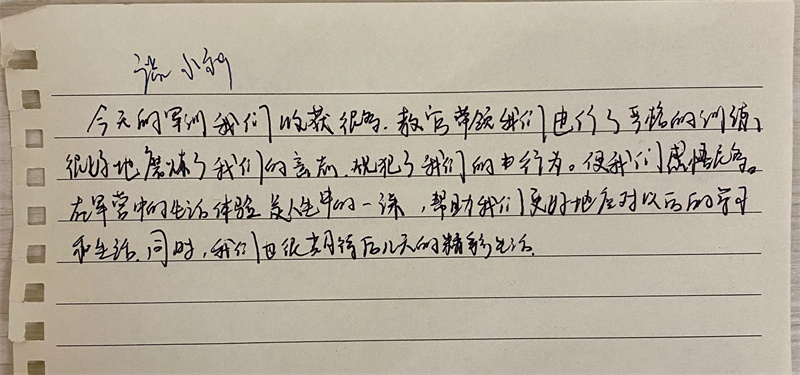 今天的军训我们收获很多.教官带领我们进行了严格的训练,
很好地磨炼了我们的意志.规范了我们的行为。使我们感悟良多。
在军营中的生活体验是人生中的一课,帮助我们更好地应对以后的学习
和生活.同时,我们也很期待后几天的精彩生活.